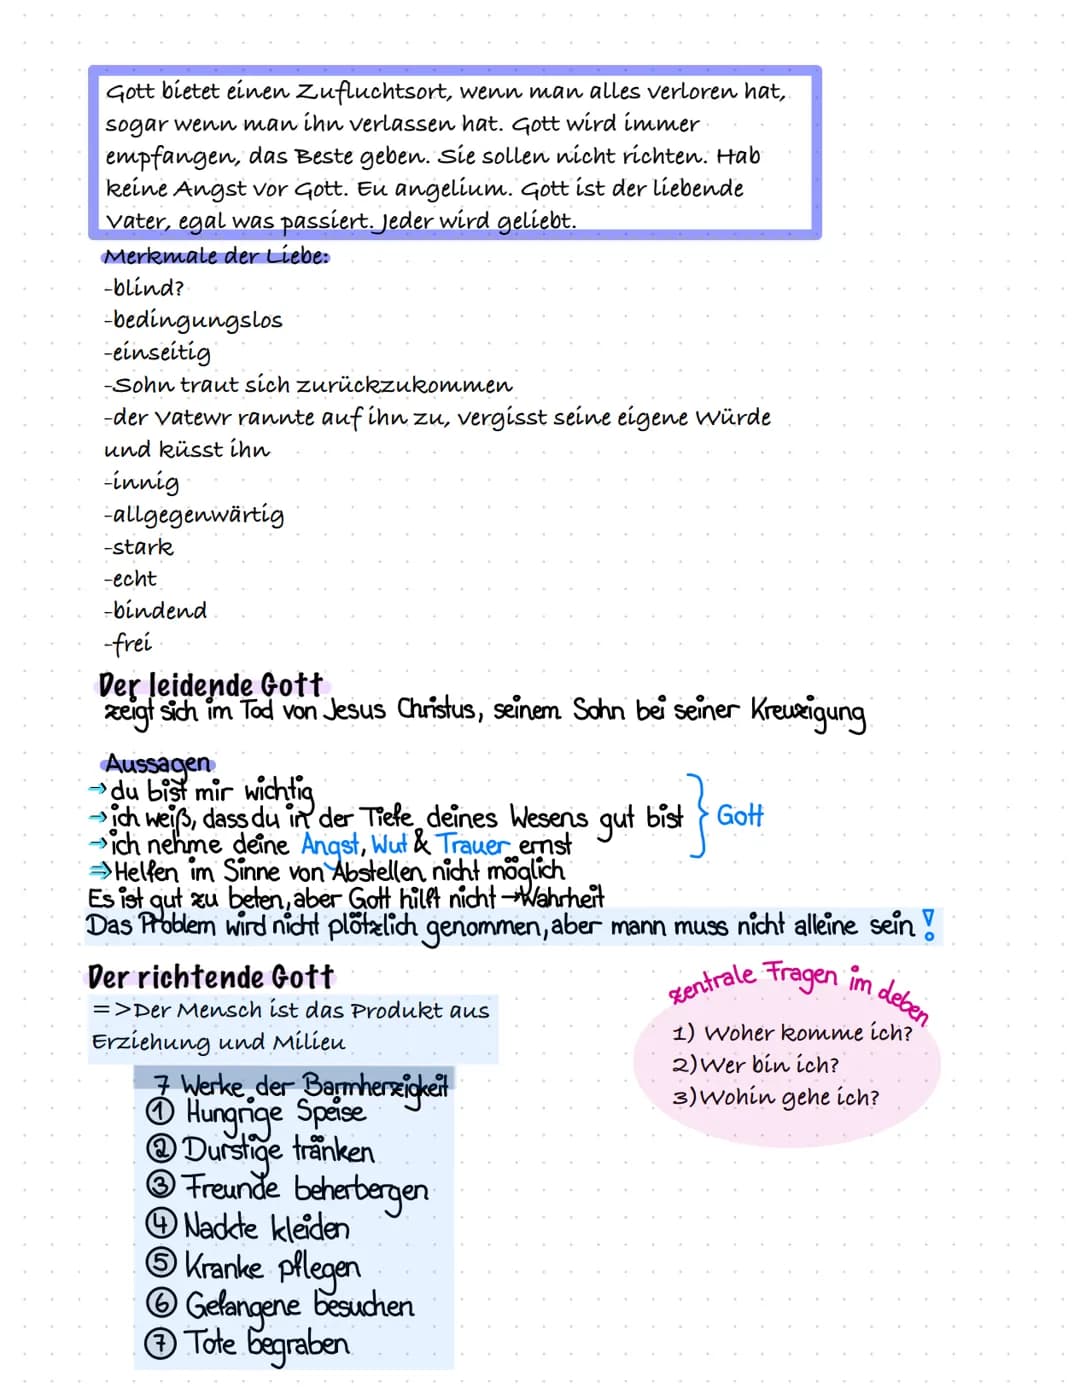 Gott bietet einen Zufluchtsort, wenn man alles verloren hat,
sogar wenn man ihn verlassen hat. Gott wird immer
empfangen, das Beste geben. Sie sollen nicht richten. Hab
keine Angst vor Gott. Eu angelium. Gott ist der liebende
Vater, egal was passiert. Jeder wird geliebt.
Merkmale der Liebe:
-blind?
-bedingungslos
-einseitig
-Sohn traut sich zurückzukommen
-der Vatewr rannte auf ihn zu, vergisst seine eigene Würde
und küsst ihn
-innig
-allgegenwärtig
-stark
-echt
-bindend
-frei
Der leidende Gott
zeigt sich im Tod von Jesus Christus, seinem Sohn bei seiner Kreuzigung
Aussagen
→ du bist mir wichtig
→ ich weiß, dass du in der Tiefe deines Wesens gut bist } Gott
→ ich nehme deine Angst, Wut & Trauer ernst
⇒ Helfen im Sinne von Abstellen nicht möglich
Es ist gut zu beten, aber Gott hilft nicht → Wahrheit
Das Problem wird nicht plötzlich genommen, aber mann muss nicht alleine sein !
Der richtende Gott
=>Der Mensch ist das Produkt aus
Erziehung und Milieu
7 Werke der Barmherzigkeit
① Hungrige Speise
② Durstige tränken
③ Freunde beherbergen
④ Nackte kleiden
⑤ Kranke pflegen
⑥ Gefangene besuchen
⑦ Tote begraben
zentrale Fragen im deben
1) Woher komme ich?
2) Wer bin ich?
3) Wohin gehe ich?